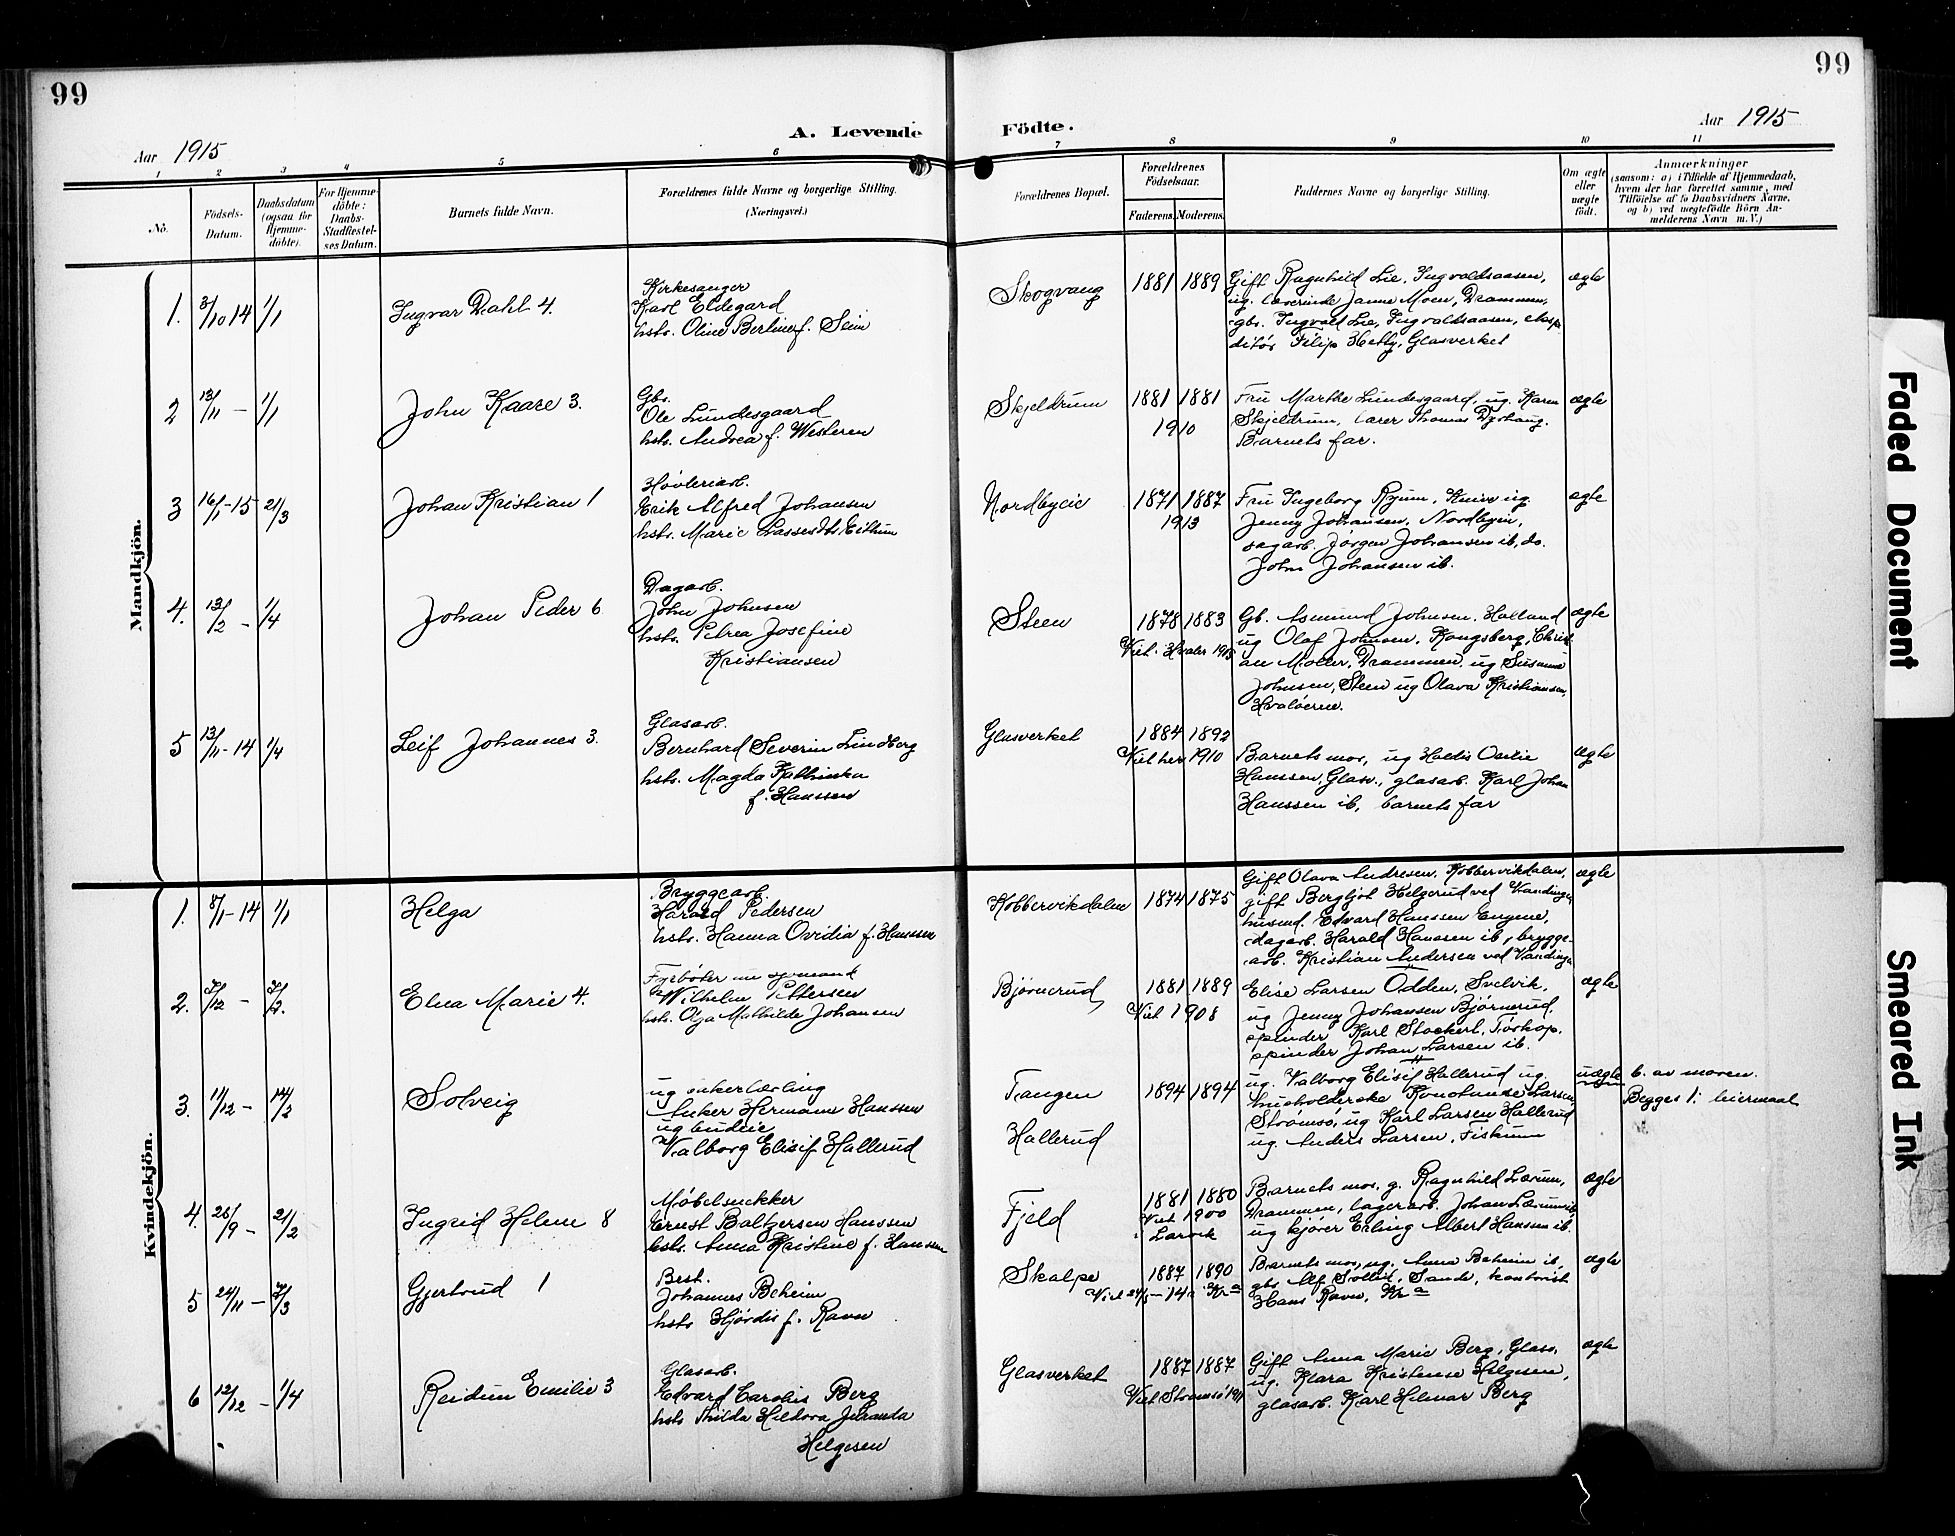 99
99
Aar 1915
A. Levende
Födte.
Aar 1915
1
2
3
4
5
6
7
8
9
10
11
No.
Födsels-
Datum.
Daabsdatum
(ogsaa for
Hjemme-
döbte).
For Hjemme-
döbte:
Daabs-
Stadfæstel-
ses Datum.
Barnets fulde Navn.
Forældrenes fulde Navne og borgerlige Stilling.
(Næringsvei.)
Forældrenes Bopæl.
Forældrenes
Födselsaar.
Faderens.
Moderens.
Faddernes Navne og borgerlige Stilling.
Om ægte
eller
uægte
födt.
Anmærkninger
(saasom: a) i Tilfælde af Hjemmedaab,
hvem der har forrettet samme, med
Tilföielse af to Daabsvidners Navne,
og b) ved uægtefödte Börn An-
melderens Navn m. V.)
Mandkjön.
1. 3/10 14 1/1
Ingvar Dahl 4.
Kirkesanger
Karl Eldegard
hstr. Oline Berline f. Seim
Skogvang
1881 1889
Gift Ragnhild Lie, Ingvaldsaasen,
ug. lærerinde Janna Moen, Drammen,
gbr. Ingvald Lie, Ingvaldsaasen, ekspe
ditør Filip Hetty, Glasverket
ægte
2 13/11 - 1/1
John Kaare 3.
Gbr.
Ole Lundesgaard
hstr. Andrea f. Westeren
Skjeldrum
1881 1881
1910
Fru Marthe Lundesgaard, ug. Karen
Skjeldrum, lærer Thomas Dyshaug.
Barnets far.
ægte
3 16/1-15 21/3
Johan Kristian 1
Høvleriarb.
Erik Alfred Johansen
hstr. Marie Lassesdtr. Eithum
Nordbyeie
1871 1887
1913
Fru Ingeborg Ryum, Knive ug.
Jenny Johansen, Nordbyein,
sagarb. Jørgen Johansen ib, do.
John Johansen ib.
ægte
4. 13/2 - 1/4
Johan Peder 6
Dagarb.
John Johnsen
hstr. Petrea Josefine
Kristiansen
Steen
1878 1883
Viet. Hvaler 1905
Gb. Asmund Johnsen, Holland
ug Olaf Johnsen, Kongsberg, Christ
an Moller, Drammen, ug Susanna
Johnsen, Steen ug Olava Kristiansen,
Hvaløerne.
ægte
5 13/11-14 1/4
Leif Johannes 3.
Glasarb.
Bernhard Severin Lindberg
hstr. Magda Kathinka
f. Hanssen
Glasverket
1884 1892
Viet her 1910
Barnets mor, ug Haldis Oselie
Hanssen, Glasv., glasarb. Karl Johan
Hanssen ib, barnets far
ægte
Kvindekjön.
1. 8/1-14 1/1
Helga
Bryggearb.
Harald Pedersen
hstr. Hanna Ovidia f. Hanssen
Kobbervikdalen
1874 1875
Gift Olava Andresen, Kobbervikdalen,
gift Bergljot Helgerud ved Vandinga
husmd. Edvard Hanssen Engene,
dagarb. Harald Hanssen ib, brygge-
arb. Kristian Andersen ved Vandinga
ægte
2. 7/12 - 7/2.
Elna Marie 4.
Fyrbøter nu sjømand
Wilhelm Pettersen
hstr. Olga Mathilde Johansen
Bjørnerud
1881 1889
Viet 1908
Elise Larsen Odden, Svelvik,
ug Jenny Johansen Bjørnerud,
spinder Karl Stockert, Tørkop,
spinder Johan Larsen ib.
ægte
3. 11/12 - 14/2
Solveig
ug bakerlærling
Anker Hermann Hanssen
ug budeie
Valborg Elisif Hallerud
Tangen
Hallerud
1894 1894
ug. Valborg Elisif Hallerud ug.
husholderske Konstanse Larsen,
Strømsø, ug Karl Larsen Hallerud
ug. Anders Larsen, Fiskum
uægte
b. av moren.
Begges 1. leiermaal
4. 26/9 - 21/2
Ingrid Helene 8
Møbelsnekker
Ernst Baltzersen Hanssen
hstr. Anna Kristine f. Hanssen
Fjeld
1881 1880
Viet 1900
i Larvik
Barnets mor, g. Ragnhild Lærum,
Drammen, lagerarb. Johan Lærum ib
ug kjører Erling Albert Hansen ib.
ægte
5 24/11 - 7/3
Gjertrud 1
Best.
Johannes Beheim
hstr Hjørdis f. Ravn
Skalpe
1887 1890
Viet 24/5-14 i Kra
Barnets mor, ug. Anna Beheim ib,
gbr. Alf Sollid, Sande, kontorist
Hans Ravn, Kra
ægte
6 12/12 - 1/4
Reidun Emilie 3
Glasarb.
Edvard Carolis Berg
hstr Thilda Heldora Johanda
Helgesen
Glasverket
1887 1887
Viet Strømsø 1911
Gift Anna Marie Berg, Glasv,
ug. Klara Kristense Helgesen,
glasarb. Karl Helmar Berg
ægte
Faded Document
Smeared Ink